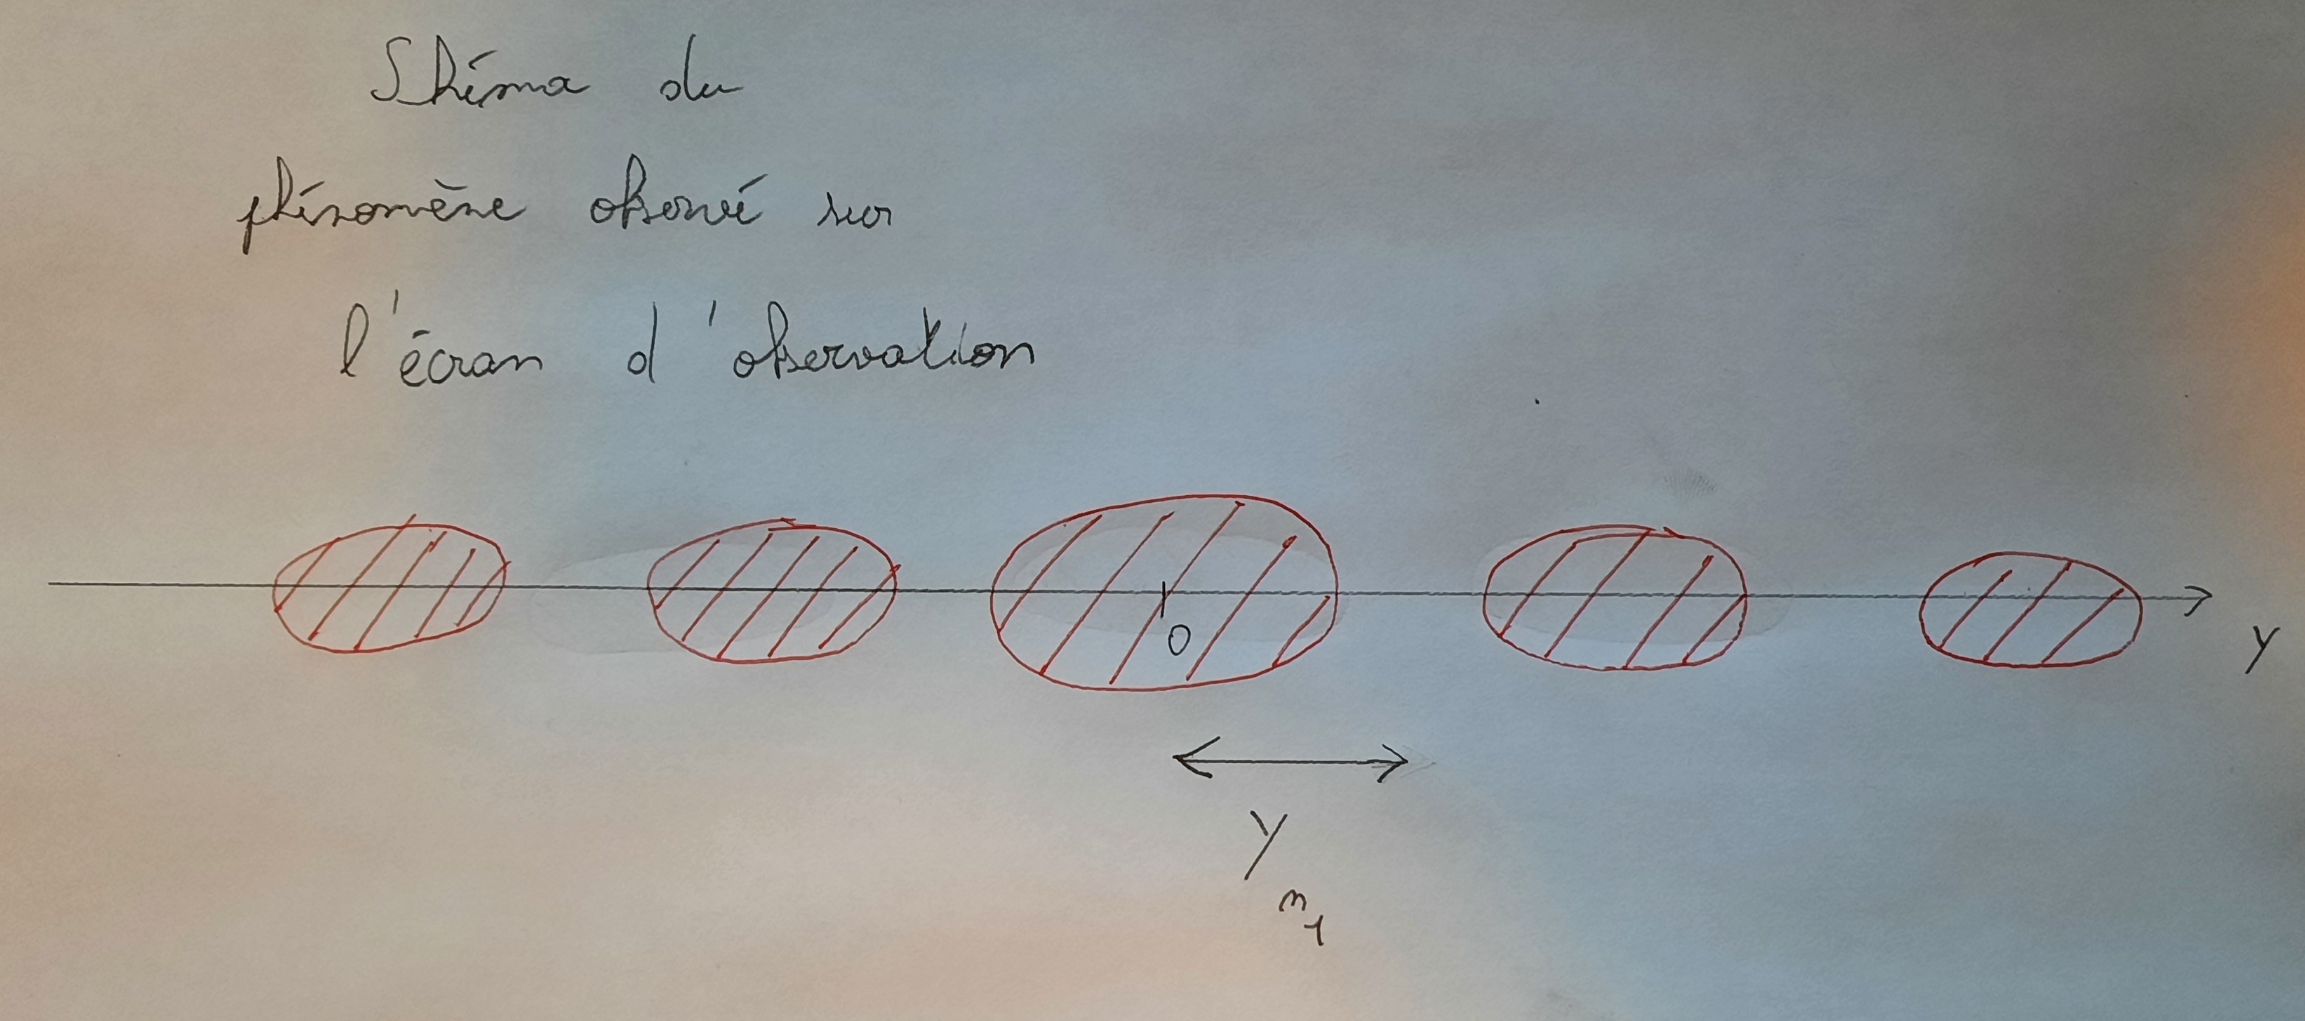 Shéma du
phénomène observé sur
l'écran d'observation
O
y
y
n1